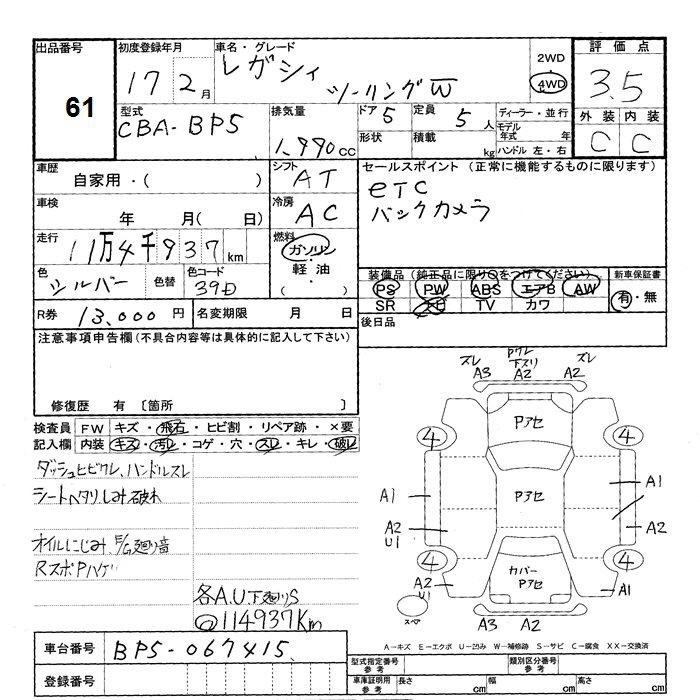 出品番号 初度登録年月 車名・グレード 評価点
61 17 2月 レガシィ ツーリングW 2WD 4WD 3.5
型式 排気量 ドア 5 定員 5人 ディーラー・並行 外装 内装
CBA-BP5 1,990cc 形状 積載 kg モデル年式 年 ハンドル 左・右 C C
車歴 シフト セールスポイント (正常に機能するものに限ります)
自家用・( ) AT ETC
車検 冷房 バックカメラ
年 月( 日) AC
走行 燃料
11万4千937km ガソリン・軽油・( )
色 色替 色コード 装備品 (純正品に限り○をつけてください) 新車保証書
シルバー 39D PS PW ABS エアB AW 有・無
SR TV カワ
R券 13,000円 名変期限 月 日 後日品
注意事項申告欄 (不具合内容等は具体的に記入して下さい)
修復歴 有 〔箇所 〕
検査員 FW キズ・飛石・ヒビ割・リペア跡・×要
記入欄 内装 キズ・汚レ・コゲ・穴・スレ・キレ・破レ
ダッシュヒビワレ、ハンドルスレ
シートヘタリしみ破れ
オイルにじみ E/G廻り音
RスポPハゲ
各A.U 下廻りS
@114937Km
ズレ Pワレ 下スリ ズレ
A3 A2 A2
Pアセ
4 4
A1 Pアセ A1
A2 U1 A2
4 4
A2 U1 カバー Pアセ A1
スペア A3 A2
A-キズ E-エクボ U-凹み W-補修跡 S-サビ C-腐食 XX-交換済
車台番号 BP5-067415
登録番号
型式指定番号 参考 類別区分番号 参考
車庫証明用 参考 長さ cm 幅 cm 高さ cm